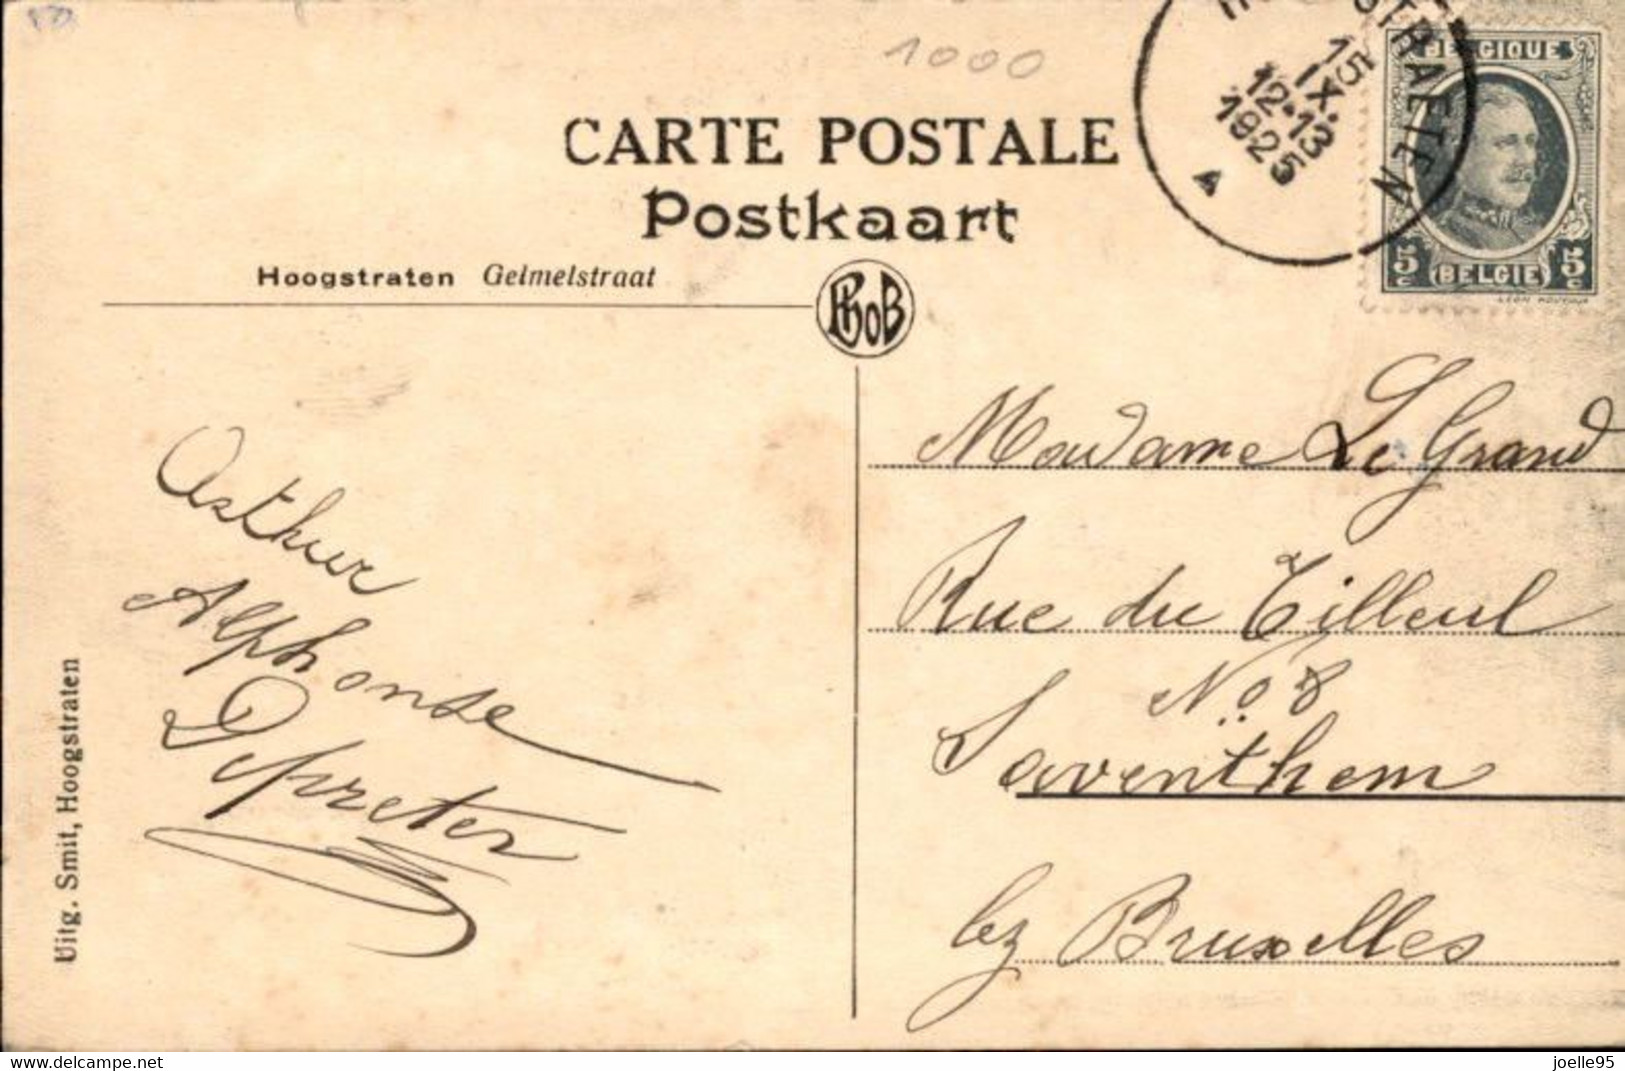 1000
CARTE POSTALE
Postkaart
Hoogstraten Gelmelstraat
PhoB
STRAETEN
15
IX
12-13
1925
BELGIQUE
5 c 5 c
(BELGIE)
Madame Le Grand
Rue du Tilleul
No 8
Saventhem
by Bruxelles
Arthur
Alphonse
Depreter
Uitg. Smit, Hoogstraten
https://www.delcampe.net
joelle95